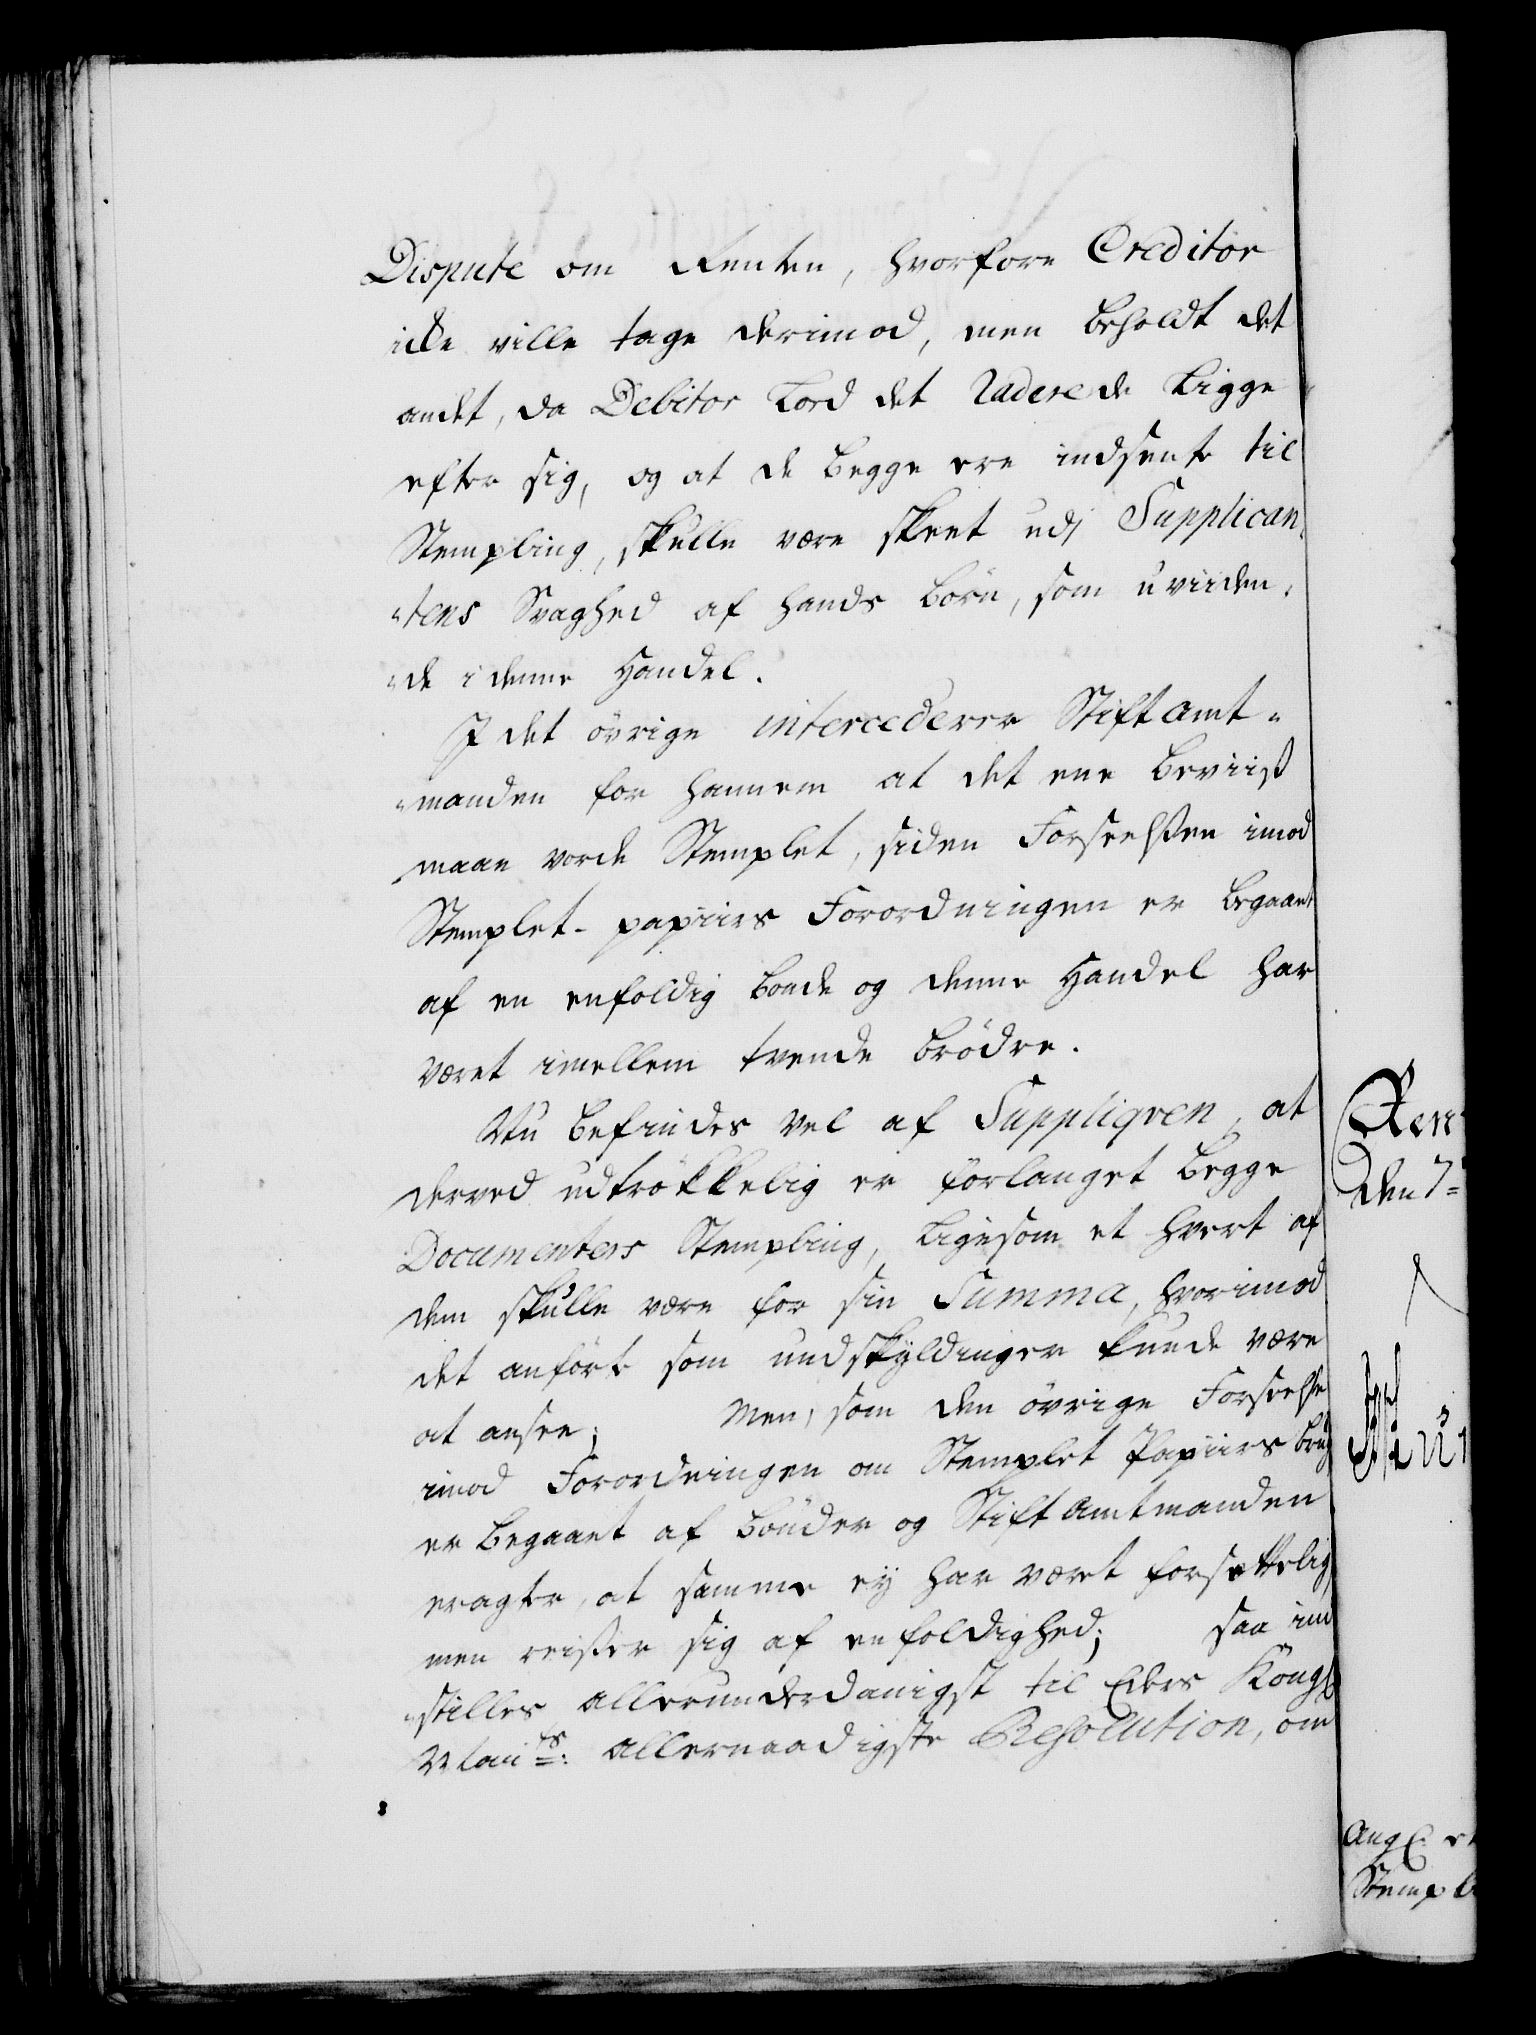 Dispute om Renten, hvorfore Creditor
icke ville tage derimod, men beholdt det
andet, da Debitor lod det Raderede ligge
efter sig, og at de begge ere indsente til
Stempling, skulle være skeet udj Supplican-
-tens Svaghed af hands börn, som uviiden-
-de i denne Handel.
I det övrige intercederer Stiftamt-
-manden for hannem at det ene Beviis
maae vorde Stemplet, siden Forseelsen imod
Stemplet-papiirs Forordningen er begaaet
af en eenfoldig bonde og denne Handel har
været imellem tvende brödre.
Nu befindes vel af Suppliqven, at
derved udtrökkelig er forlanget begge
Documenters Stempling, ligesom et hvert af
dem skulle være for sin Summa, hvorimod
det anförte som undskyldinger kunde være
at ansee; Men, som den övrige Forseelse
imod Forordningen om Stemplet Papiirs brug
er begaaet af bönder og Stiftamtmanden
eragter, at samme ey har været forsettelig,
men reiser sig af eenfoldighed; saa ind-
-stilles allerunderdanigst til Eders Kongl.
Maits: allernaadigste Resolution, om
Ren
den 7=
Angl. e
Stempl